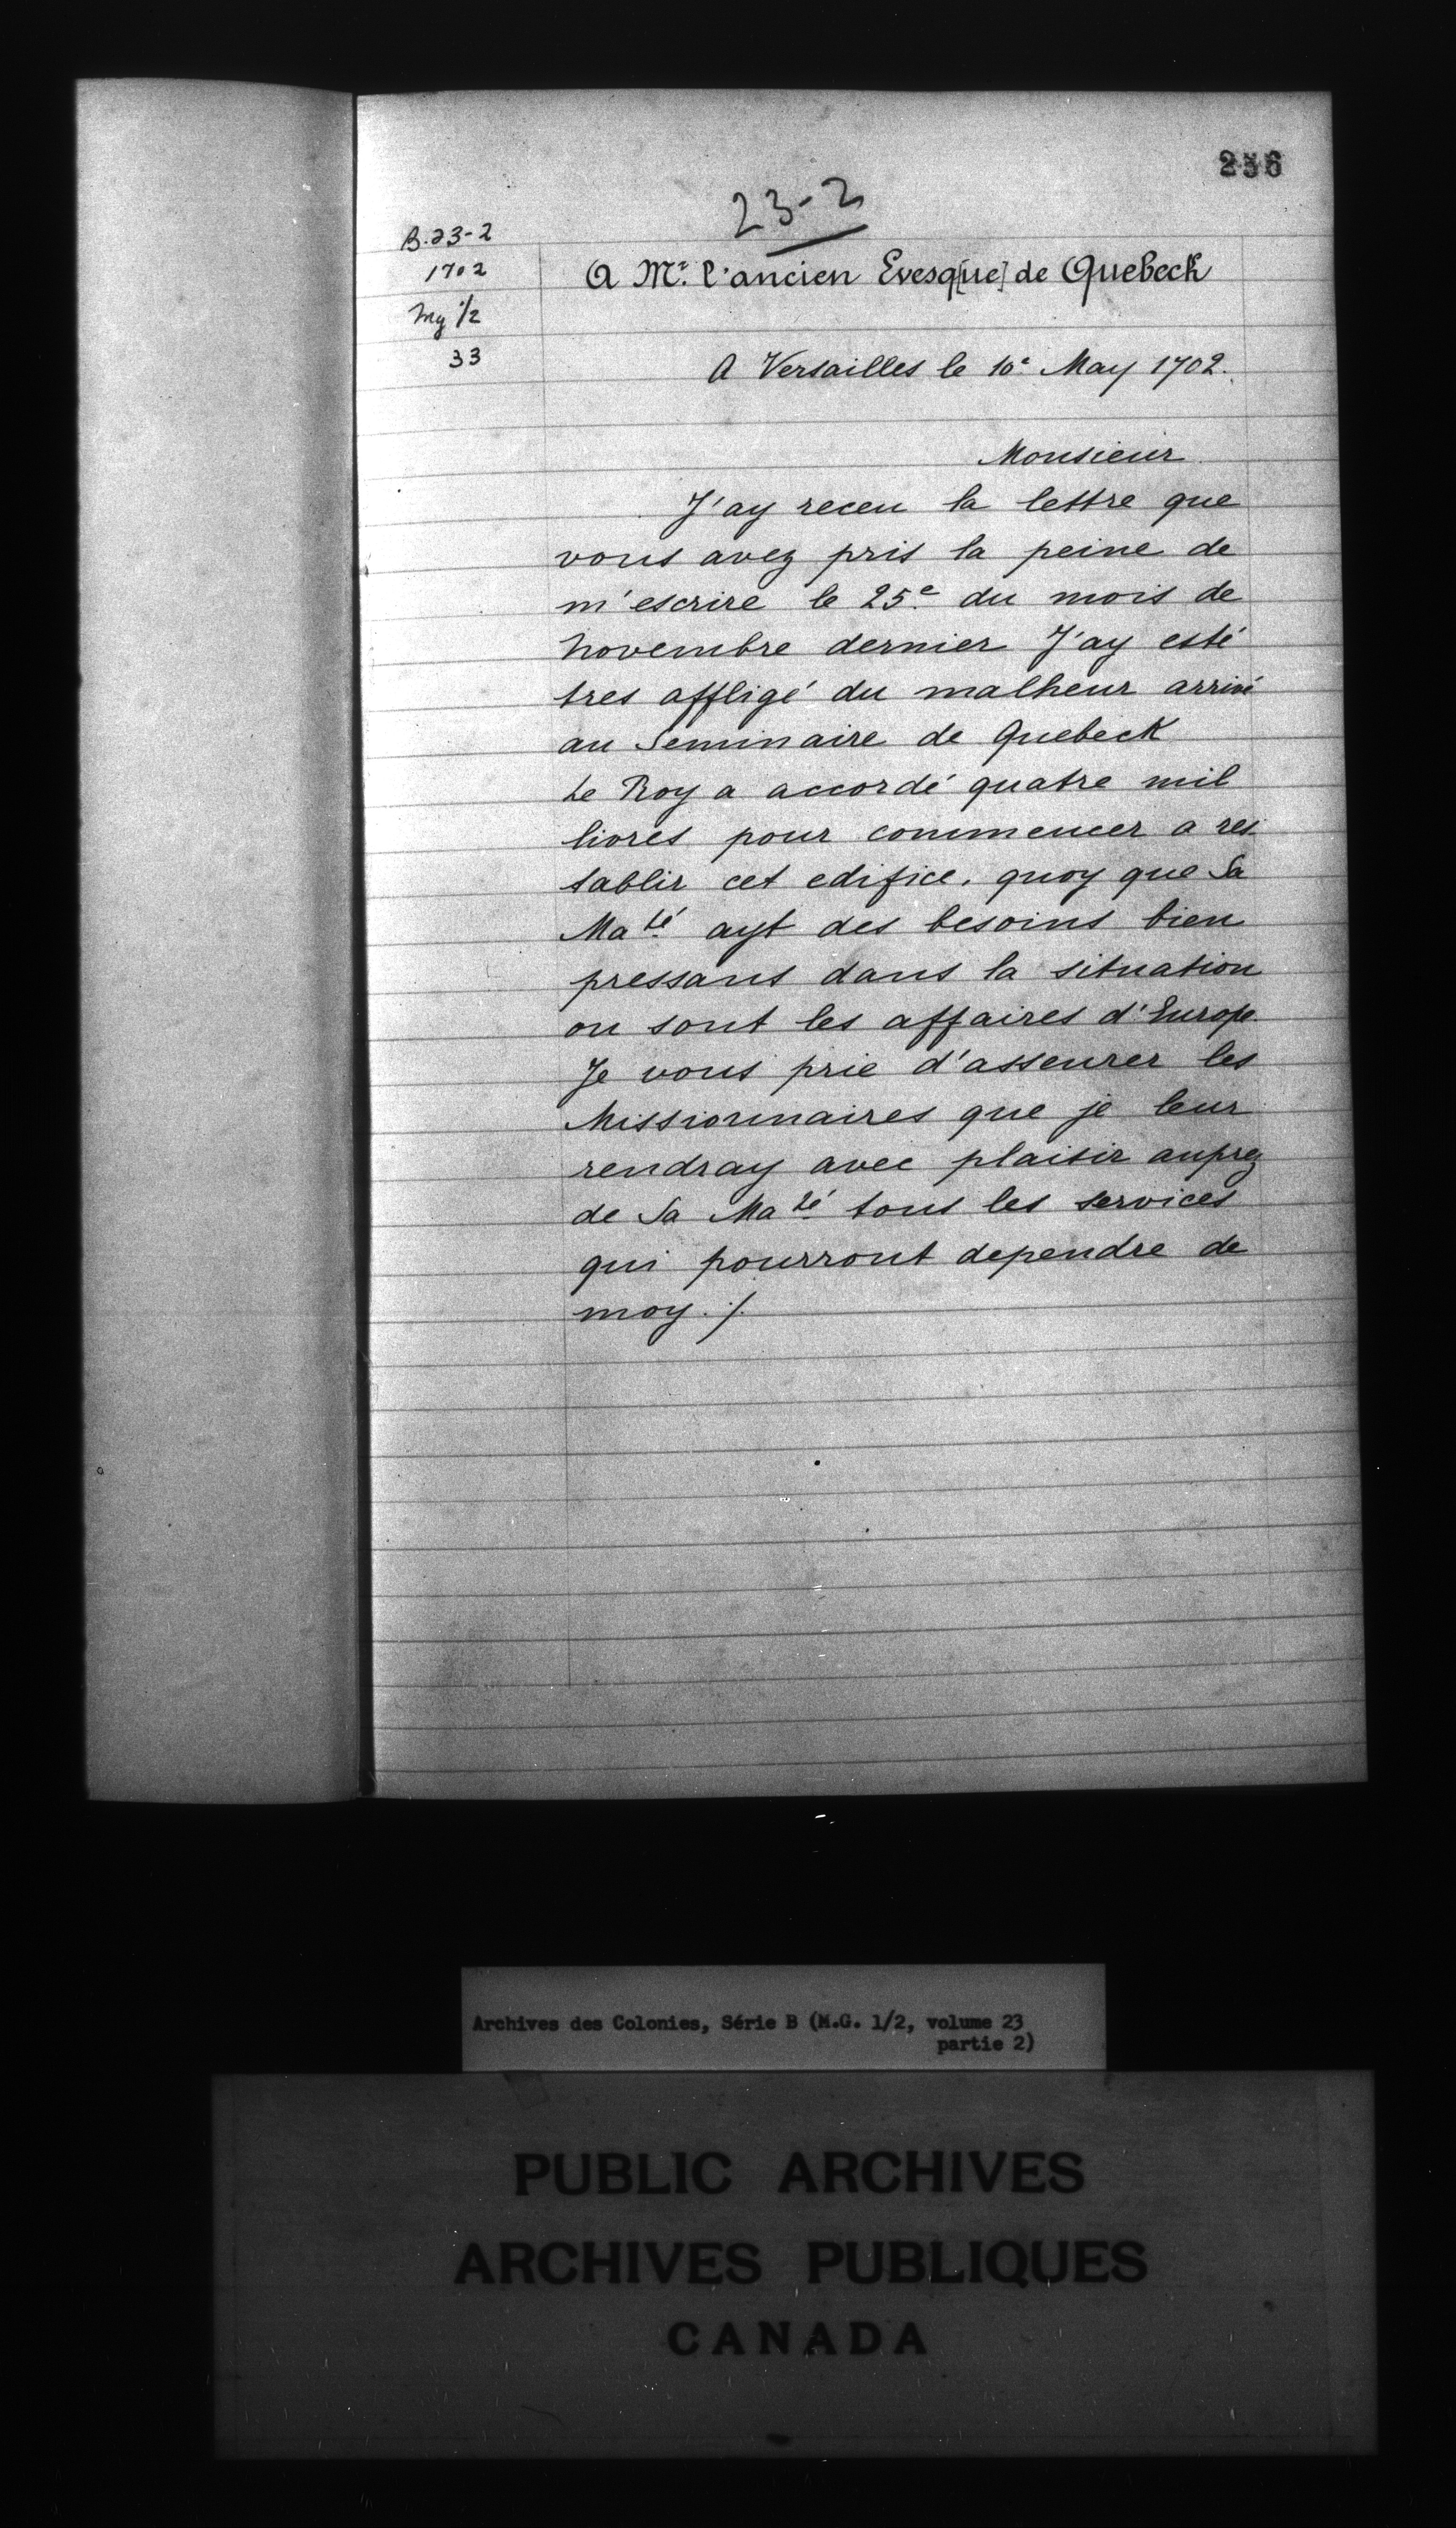 23-2
B.23-2
1702
Mg 1/2
33
A Mr. l'ancien Evesq[ue] de Quebeck
A Versailles le 10e May 1702.
Monsieur
J'ay receu la lettre que
vous avez pris la peine de
m'escrire le 25e. du mois de
Novembre dernier J'ay esté
tres affligé du malheur arrivé
au Seminaire de Quebeck
Le Roy a accordé quatre mil
livres pour commencer a res
tablir cet edifice. quoy que Sa
Maté ayt des besoins bien
pressans dans la situation
ou sont les affaires d'Europe.
Je vous prie d'asseurer les
Missionnaires que je leur
rendray avec plaisir auprez
de Sa Maté tous les services
qui pourront dependre de
moy ./.
Archives des Colonies, Série B (M.G. 1/2, volume 23
partie 2)
PUBLIC ARCHIVES
ARCHIVES PUBLIQUES
CANADA